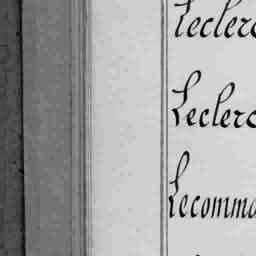 Leclerc
Leclerc
Lecomma